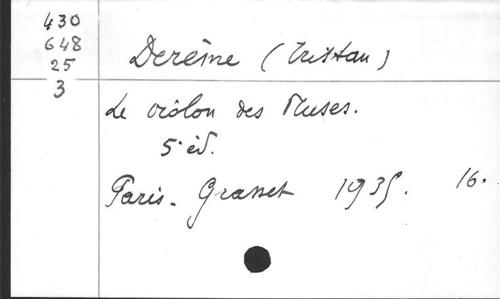 430
648
25
3
Derème (Tristan)
Le violon des Muses.
5e éd.
Paris. Grasset 1935. 16.